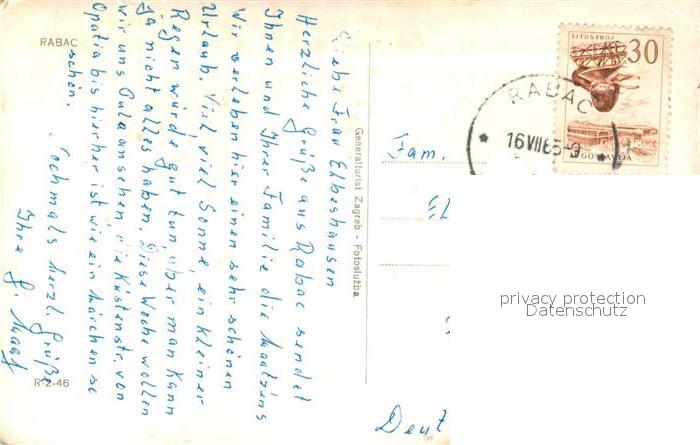 RABAC
Liebe Frau Elbeshausen
Herzliche Grüße aus Rabac sendet
Ihnen und Ihrer Familie die
Wir verleben hier einen sehr schönen
Urlaub. Viel viel Sonne, ein kleiner
Regen würde gut tun, aber man kann
ja nicht alles haben. Diese Woche wollen
wir uns Pula ansehen die Küstenstr. von
Opatia bis hierher ist wie ein Märchen so
schön.
Nochmals herzl. Grüße
Ihre G.
R-2-46
Generalturist Zagreb - Fotoslužba
LITOSTROJ
30
JUGOSLAVIJA
RABAC
16 VII 65-9
Fam.
El
Deut
privacy protection
Datenschutz